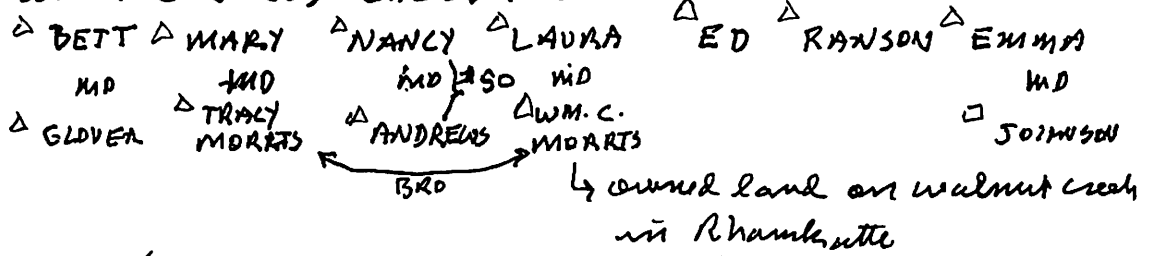 BETT MARY NANCY LAURA ED RANSON EMMA
MD MD MD SO MD MD
GLOVER TRACY MORRIS ANDREWS WM. C. MORRIS JOHNSON
BRO
owned land on walnut creek
in Rhamkatte